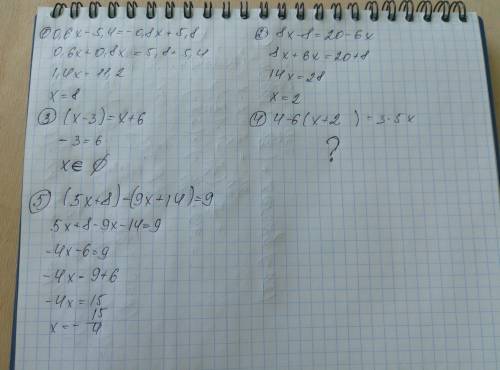 ① 0,6x-5,4=-0,8x+5,8
0,6x+0,8x=5,8+5,4
1,4x=11,2
x=8
② 8x-8=20-6x
8x+6x=20+8
14x=28
x=2
③ (x-3)=x+6
-3=6
x∈ ∅
④ 4-6(x+2)=3-5x
?
⑤ (5x+8)-(9x+14)=9
5x+8-9x-14=9
-4x-6=9
-4x=9+6
-4x=15
x=-15/4